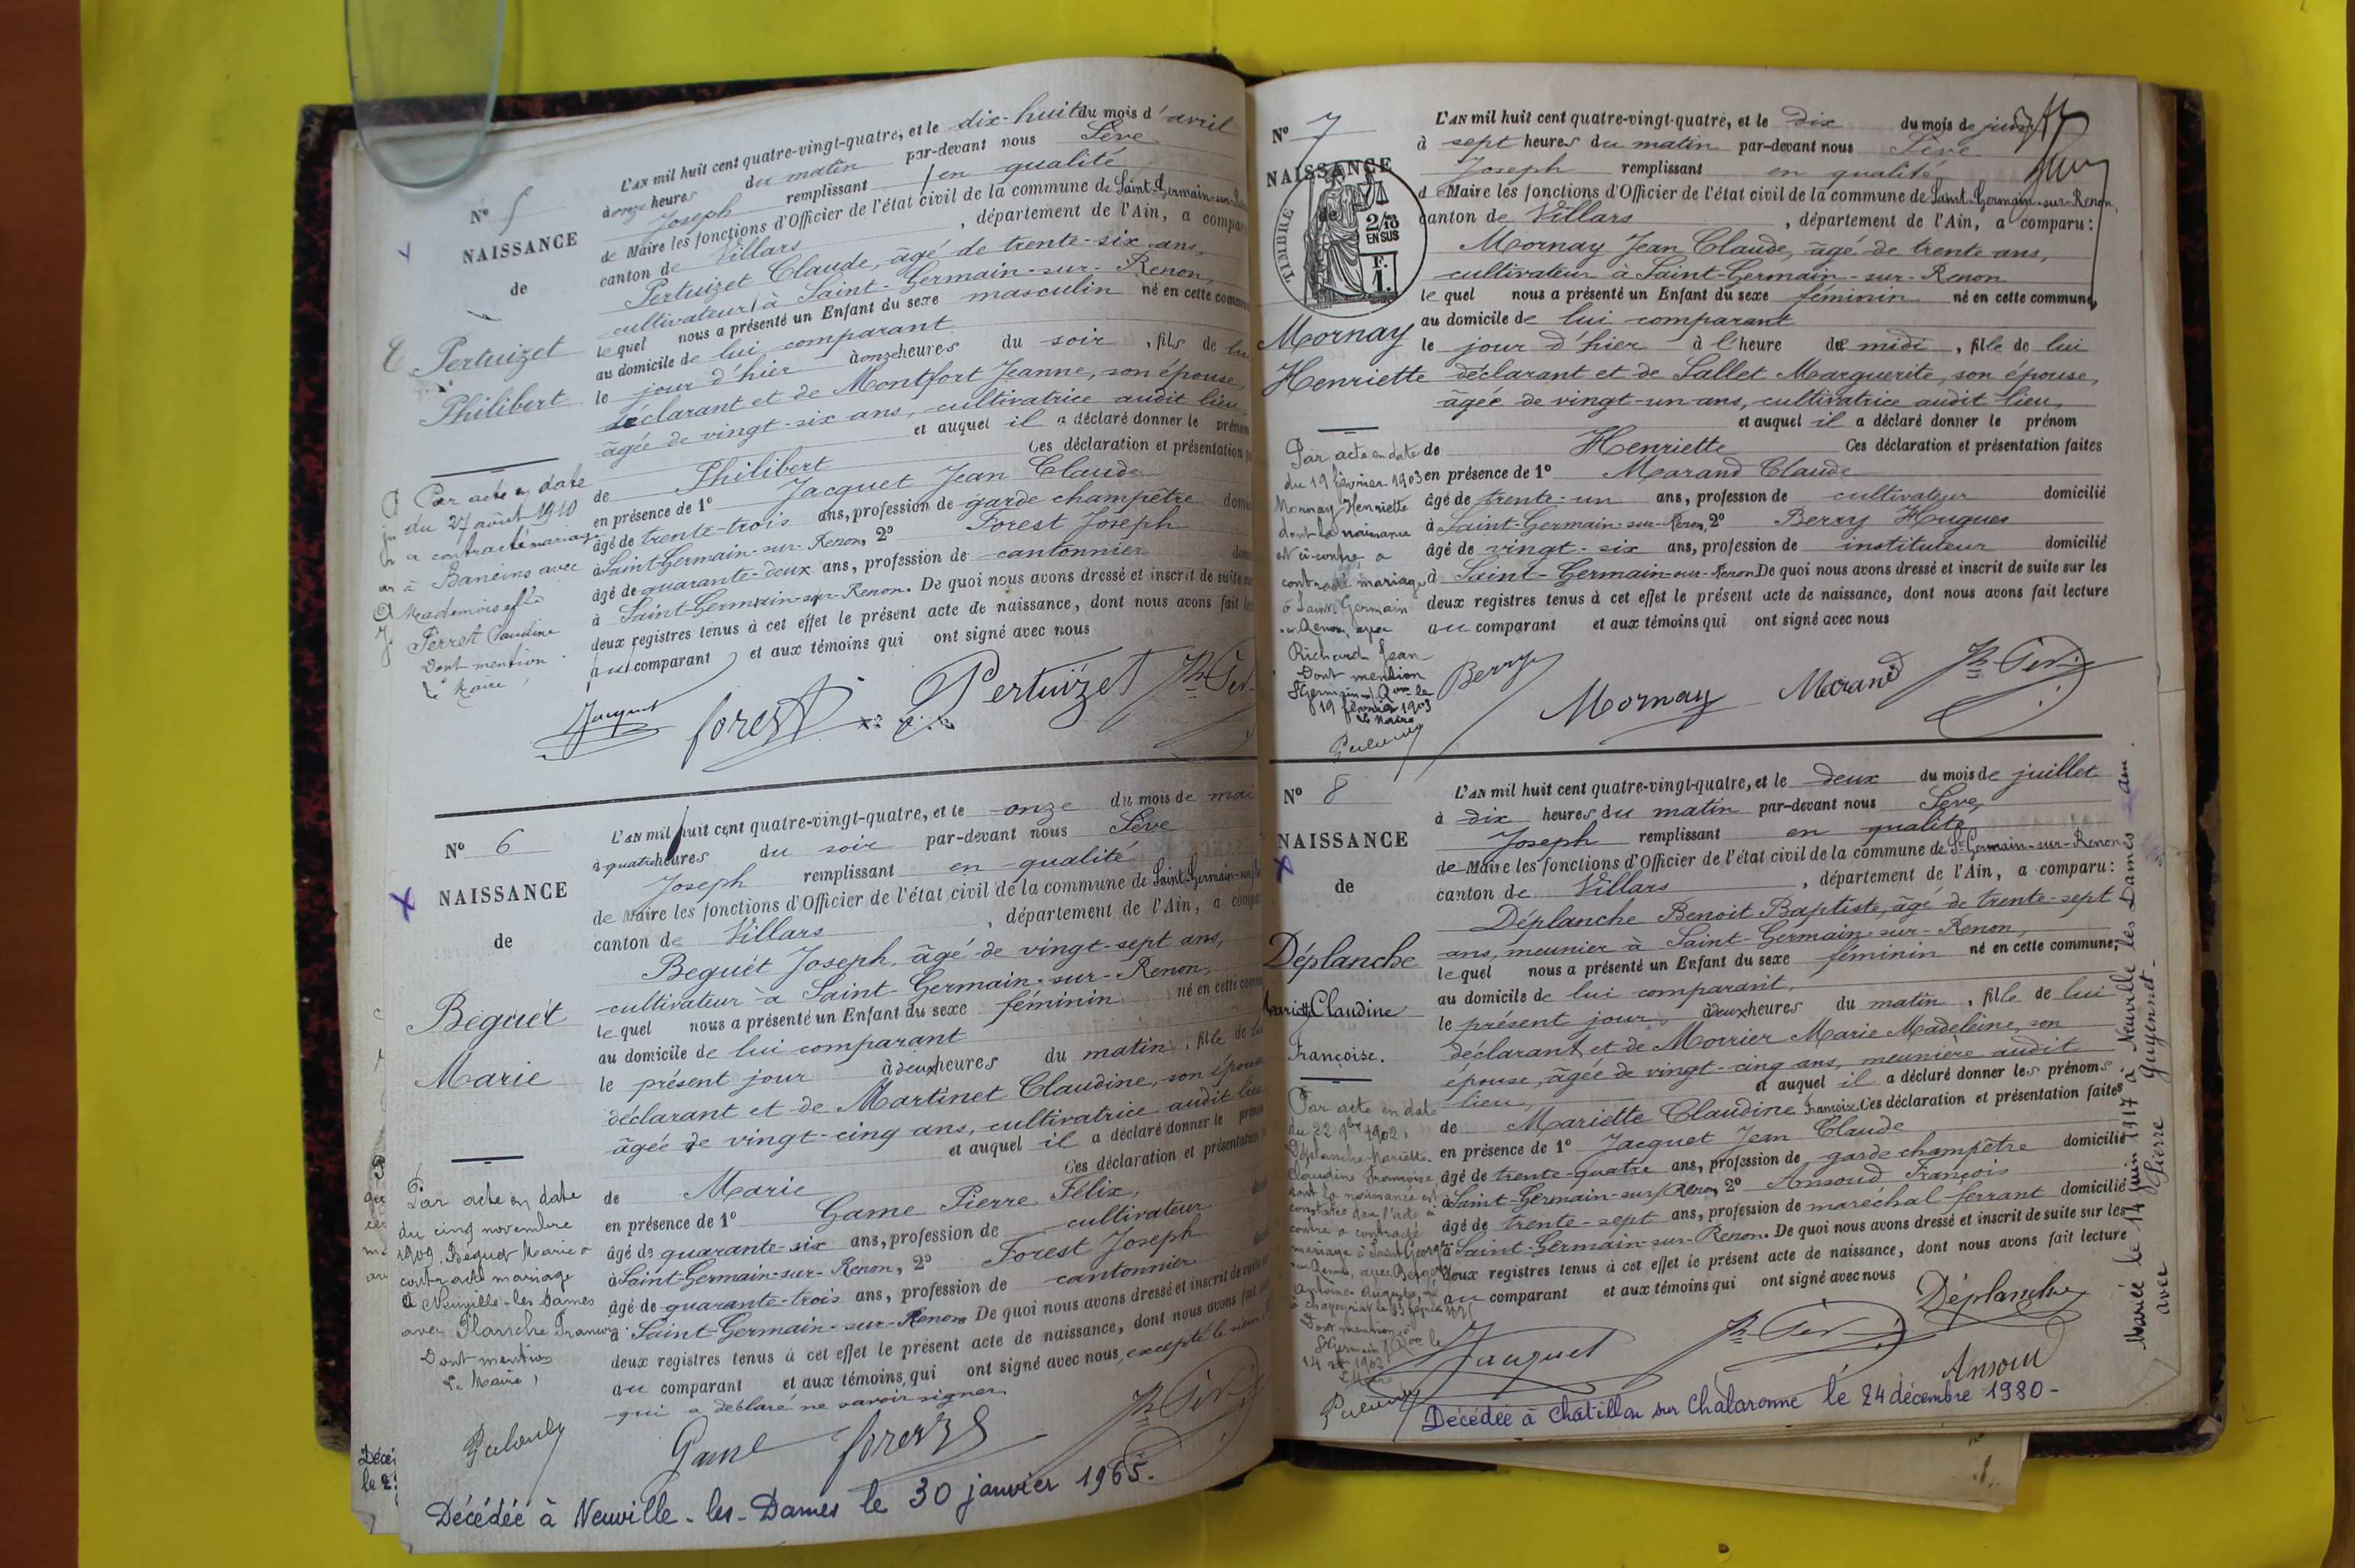 N° 5
NAISSANCE
de
Pertuizet
Philibert
Par acte en date
du 27 août 1910
a contracté mariage
à Baneins avec
Mademoiselle
Perret Claudine
Dont mention
Le Maire
L'AN mil huit cent quatre-vingt-quatre, et le dix-huit du mois d'avril
à onze heures du matin par-devant nous Sève
Joseph remplissant en qualité
de Maire les fonctions d'Officier de l'état civil de la commune de Saint-Germain-sur-
canton de Villars, département de l'Ain, a compar
Pertuizet Claude, âgé de trente-six ans,
cultivateur à Saint-Germain-sur-Renon,
lequel nous a présenté un Enfant du sexe masculin né en cette commun
au domicile de lui comparant
le jour d'hier à onze heures du soir, fils de lui
déclarant et de Montfort Jeanne, son épouse,
âgée de vingt-six ans, cultivatrice audit lieu,
et auquel il a déclaré donner le prénom
de Philibert Ces déclaration et présentation
en présence de 1° Jacquet Jean Claude
âgé de trente-trois ans, profession de garde champêtre domi
à Saint-Germain-sur-Renon, 2° Forest Joseph
âgé de quarante-deux ans, profession de cantonnier
à Saint-Germain-sur-Renon. De quoi nous avons dressé et inscrit de suite
deux registres tenus à cet effet le présent acte de naissance, dont nous avons fait
au comparant et aux témoins qui ont signé avec nous
Jacquet forest Pertuizet
N° 6
NAISSANCE
de
Beguet
Marie
Par acte en date
du cinq novembre
1909, Béguet Marie a
contracté mariage
à Neuville-les-Dames
avec Planche François
Dont mention
Le Maire,
L'AN mil huit cent quatre-vingt-quatre, et le onze du mois de mai
à quatre heures du soir par-devant nous Sève
Joseph remplissant en qualité
de Maire les fonctions d'Officier de l'état civil de la commune de Saint-Germain-sur-
canton de Villars, département de l'Ain, a compa
Beguet Joseph, âgé de vingt-sept ans,
cultivateur à Saint-Germain-sur-Renon,
lequel nous a présenté un Enfant du sexe féminin né en cette comm
au domicile de lui comparant
le présent jour à deux heures du matin, fille de lui
déclarant et de Martinet Claudine, son épouse
âgée de vingt-cinq ans, cultivatrice audit lieu
et auquel il a déclaré donner le prénom
de Marie Ces déclaration et présentation
en présence de 1° Game Pierre Félix,
âgé de quarante-six ans, profession de cultivateur
à Saint-Germain-sur-Renon, 2° Forest Joseph
âgé de quarante-trois ans, profession de cantonnier
à Saint-Germain-sur-Renon. De quoi nous avons dressé et inscrit de suite
deux registres tenus à cet effet le présent acte de naissance, dont nous avons fait
au comparant et aux témoins, qui ont signé avec nous, excepté le
qui a déclaré ne savoir signer
Game forest
Décédée à Neuville-les-Dames le 30 janvier 1965.
Déce
le 2
N° 7
NAISSANCE
de
TIMBRE
2/10
EN SUS
F.
1.
Mornay
Henriette
Par acte en date
du 19 février 1903
Mornay Henriette
dont la naissance
est ci-contre, a
contracté mariage
à Saint Germain
sur Renon, avec
Richard Jean-
Dont mention
St Germain s/ Ron le
19 février 1903
Le Maire
L'AN mil huit cent quatre-vingt-quatre, et le dix du mois de juin
à sept heures du matin par-devant nous Sève
Joseph remplissant en qualité
de Maire les fonctions d'Officier de l'état civil de la commune de Saint-Germain-sur-Renon,
canton de Villars, département de l'Ain, a comparu:
Mornay Jean Claude, âgé de trente ans,
cultivateur à Saint-Germain-sur-Renon
lequel nous a présenté un Enfant du sexe féminin né en cette commune,
au domicile de lui comparant
le jour d'hier à l'heure de midi, fille de lui
déclarant et de Sallet Marguerite, son épouse,
âgée de vingt-un ans, cultivatrice audit lieu,
et auquel il a déclaré donner le prénom
de Henriette Ces déclaration et présentation faites
en présence de 1° Marand Claude
âgé de trente-un ans, profession de cultivateur domicilié
à Saint-Germain-sur-Renon, 2° Berry Hugues
âgé de vingt-six ans, profession de instituteur domicilié
à Saint-Germain-sur-Renon De quoi nous avons dressé et inscrit de suite sur les
deux registres tenus à cet effet le présent acte de naissance, dont nous avons fait lecture
au comparant et aux témoins qui ont signé avec nous
Berry Mornay Marand
N° 8
NAISSANCE
de
Déplanche
Mariette Claudine
Françoise.
Par acte en date
du 22 9bre 1902,
Déplanche Mariette
Claudine Françoise
dont la naissance est
constatée dans l'acte ci
contre a contracté
mariage à Saint Georges
sur Renon, avec
Antoine Auguste, né
à
Dont mention
St Germain s/ Ron le
1902
Le Maire
L'AN mil huit cent quatre-vingt-quatre, et le deux du mois de juillet
à dix heures du matin par-devant nous Sève
Joseph remplissant en qualité
de Maire les fonctions d'Officier de l'état civil de la commune de St Germain-sur-Renon
canton de Villars, département de l'Ain, a comparu:
Déplanche Benoit Baptiste, âgé de trente-sept
ans, meunier à Saint-Germain-sur-Renon,
lequel nous a présenté un Enfant du sexe féminin né en cette commune,
au domicile de lui comparant,
le présent jour à deux heures du matin, fille de lui
déclarant et de Morrier Marie Madeleine, son
épouse, âgée de vingt-cinq ans, meunière audit
lieu, et auquel il a déclaré donner les prénoms
de Mariette Claudine Françoise. Ces déclaration et présentation faites
en présence de 1° Jacquet Jean Claude
âgé de trente-quatre ans, profession de garde champêtre domicilié
à Saint-Germain-sur-Renon, 2° Ansoud François
âgé de trente-sept ans, profession de maréchal ferrant domicilié
à Saint-Germain-sur-Renon. De quoi nous avons dressé et inscrit de suite sur les
deux registres tenus à cet effet le présent acte de naissance, dont nous avons fait lecture
au comparant et aux témoins qui ont signé avec nous
Déplanche
Jacquet
Décédée à Chatillon sur Chalaronne le 24 décembre 1980-
Mariée le 14 juin 1917 à Neuville les Dames
avec Pierre Guyennet-